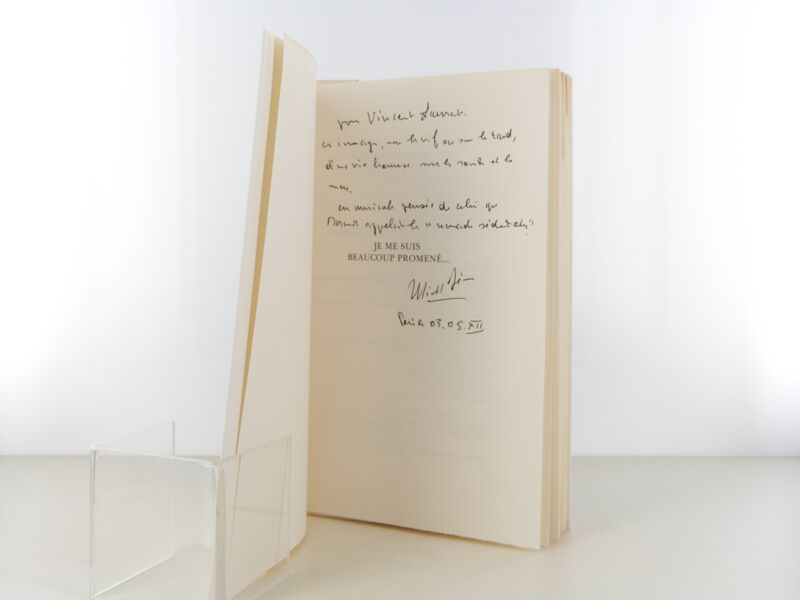 pour Vincent Laurent.
ces images, sur le vif ou sur le tard,
d'une vie heureuse sur les routes et la
mer,
en amicale pensée de celui que
appelait le nomade sédentaire
JE ME SUIS
BEAUCOUP PROMENÉ...
Michel Déon
Paris 03.05.XII